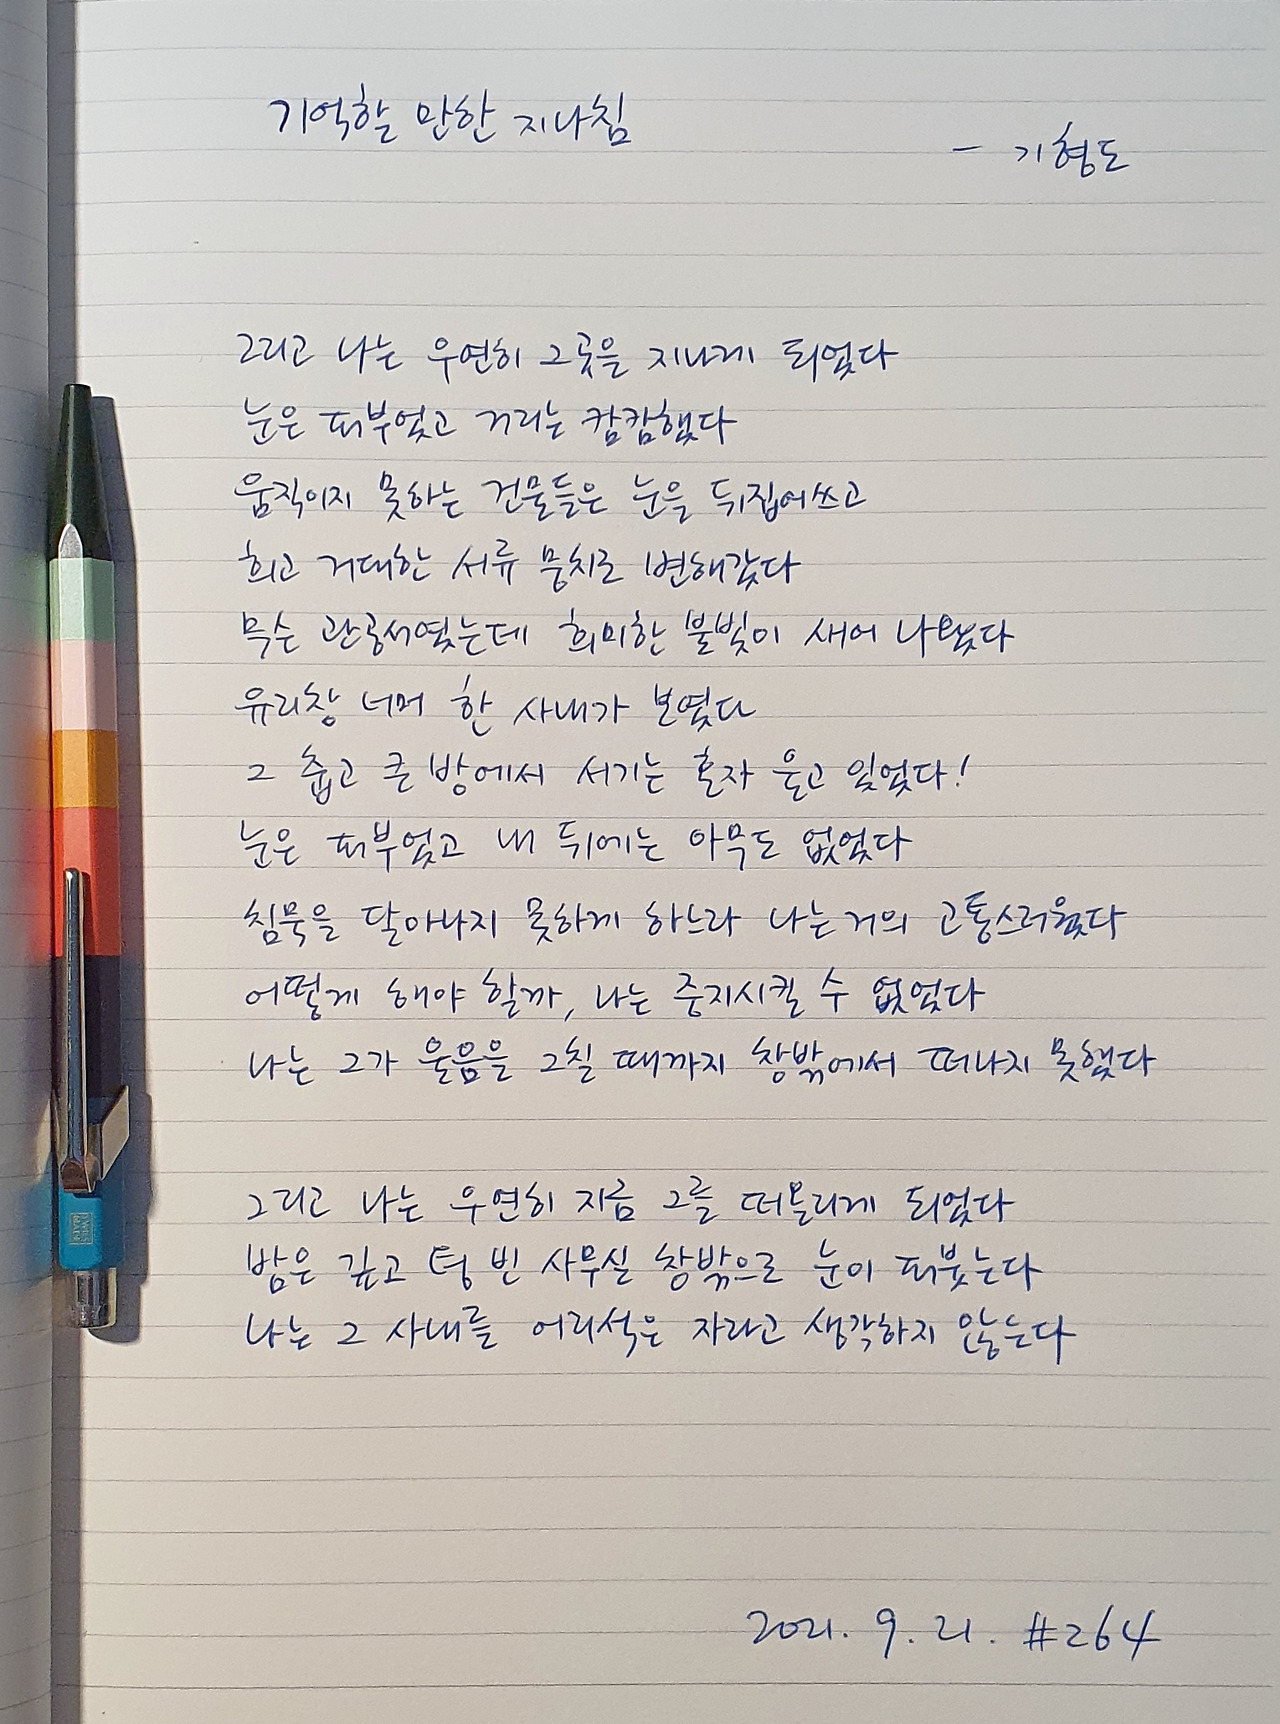 기억할 만한 지나침
- 기형도
그리고 나는 우연히 그곳을 지나게 되었다
눈은 퍼부었고 거리는 캄캄했다
움직이지 못하는 건물들은 눈을 뒤집어쓰고
희고 거대한 서류 뭉치로 변해갔다
무슨 관공서였는데 희미한 불빛이 새어 나왔다
유리창 너머 한 사내가 보였다
그 춥고 큰 방에서 서기는 혼자 울고 있었다!
눈은 퍼부었고 내 뒤에는 아무도 없었다
침묵을 달아나지 못하게 하느라 나는 거의 고통스러웠다
어떻게 해야 할까, 나는 중지시킬 수 없었다
나는 그가 울음을 그칠 때까지 창밖에서 떠나지 못했다
그리고 나는 우연히 지금 그를 떠올리게 되었다
밤은 깊고 텅 빈 사무실 창밖으로 눈이 퍼붓는다
나는 그 사내를 어리석은 자라고 생각하지 않는다
2021. 9. 21. #264